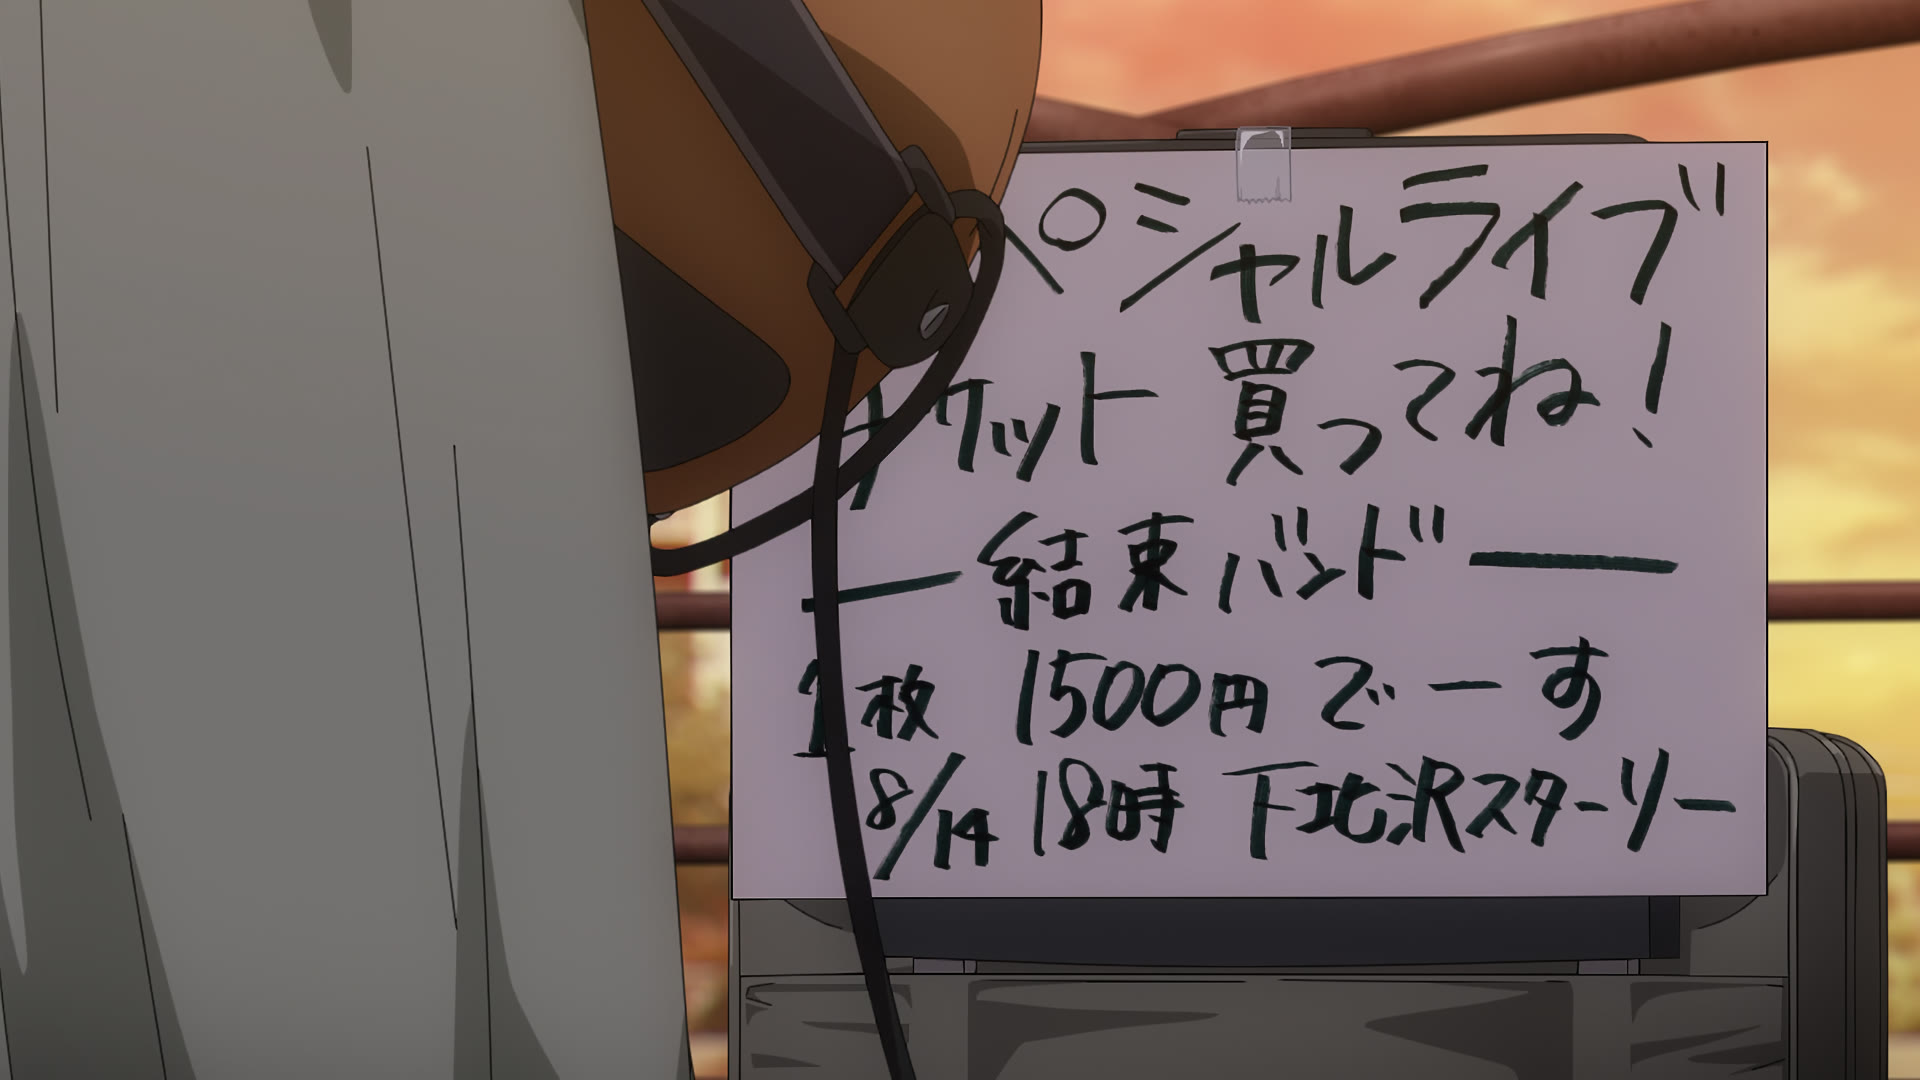 ペシャルライブ
ケット 買ってね!
— 結束バンド —
1枚 1500円 でーす
8/14 18時 下北沢スターリー